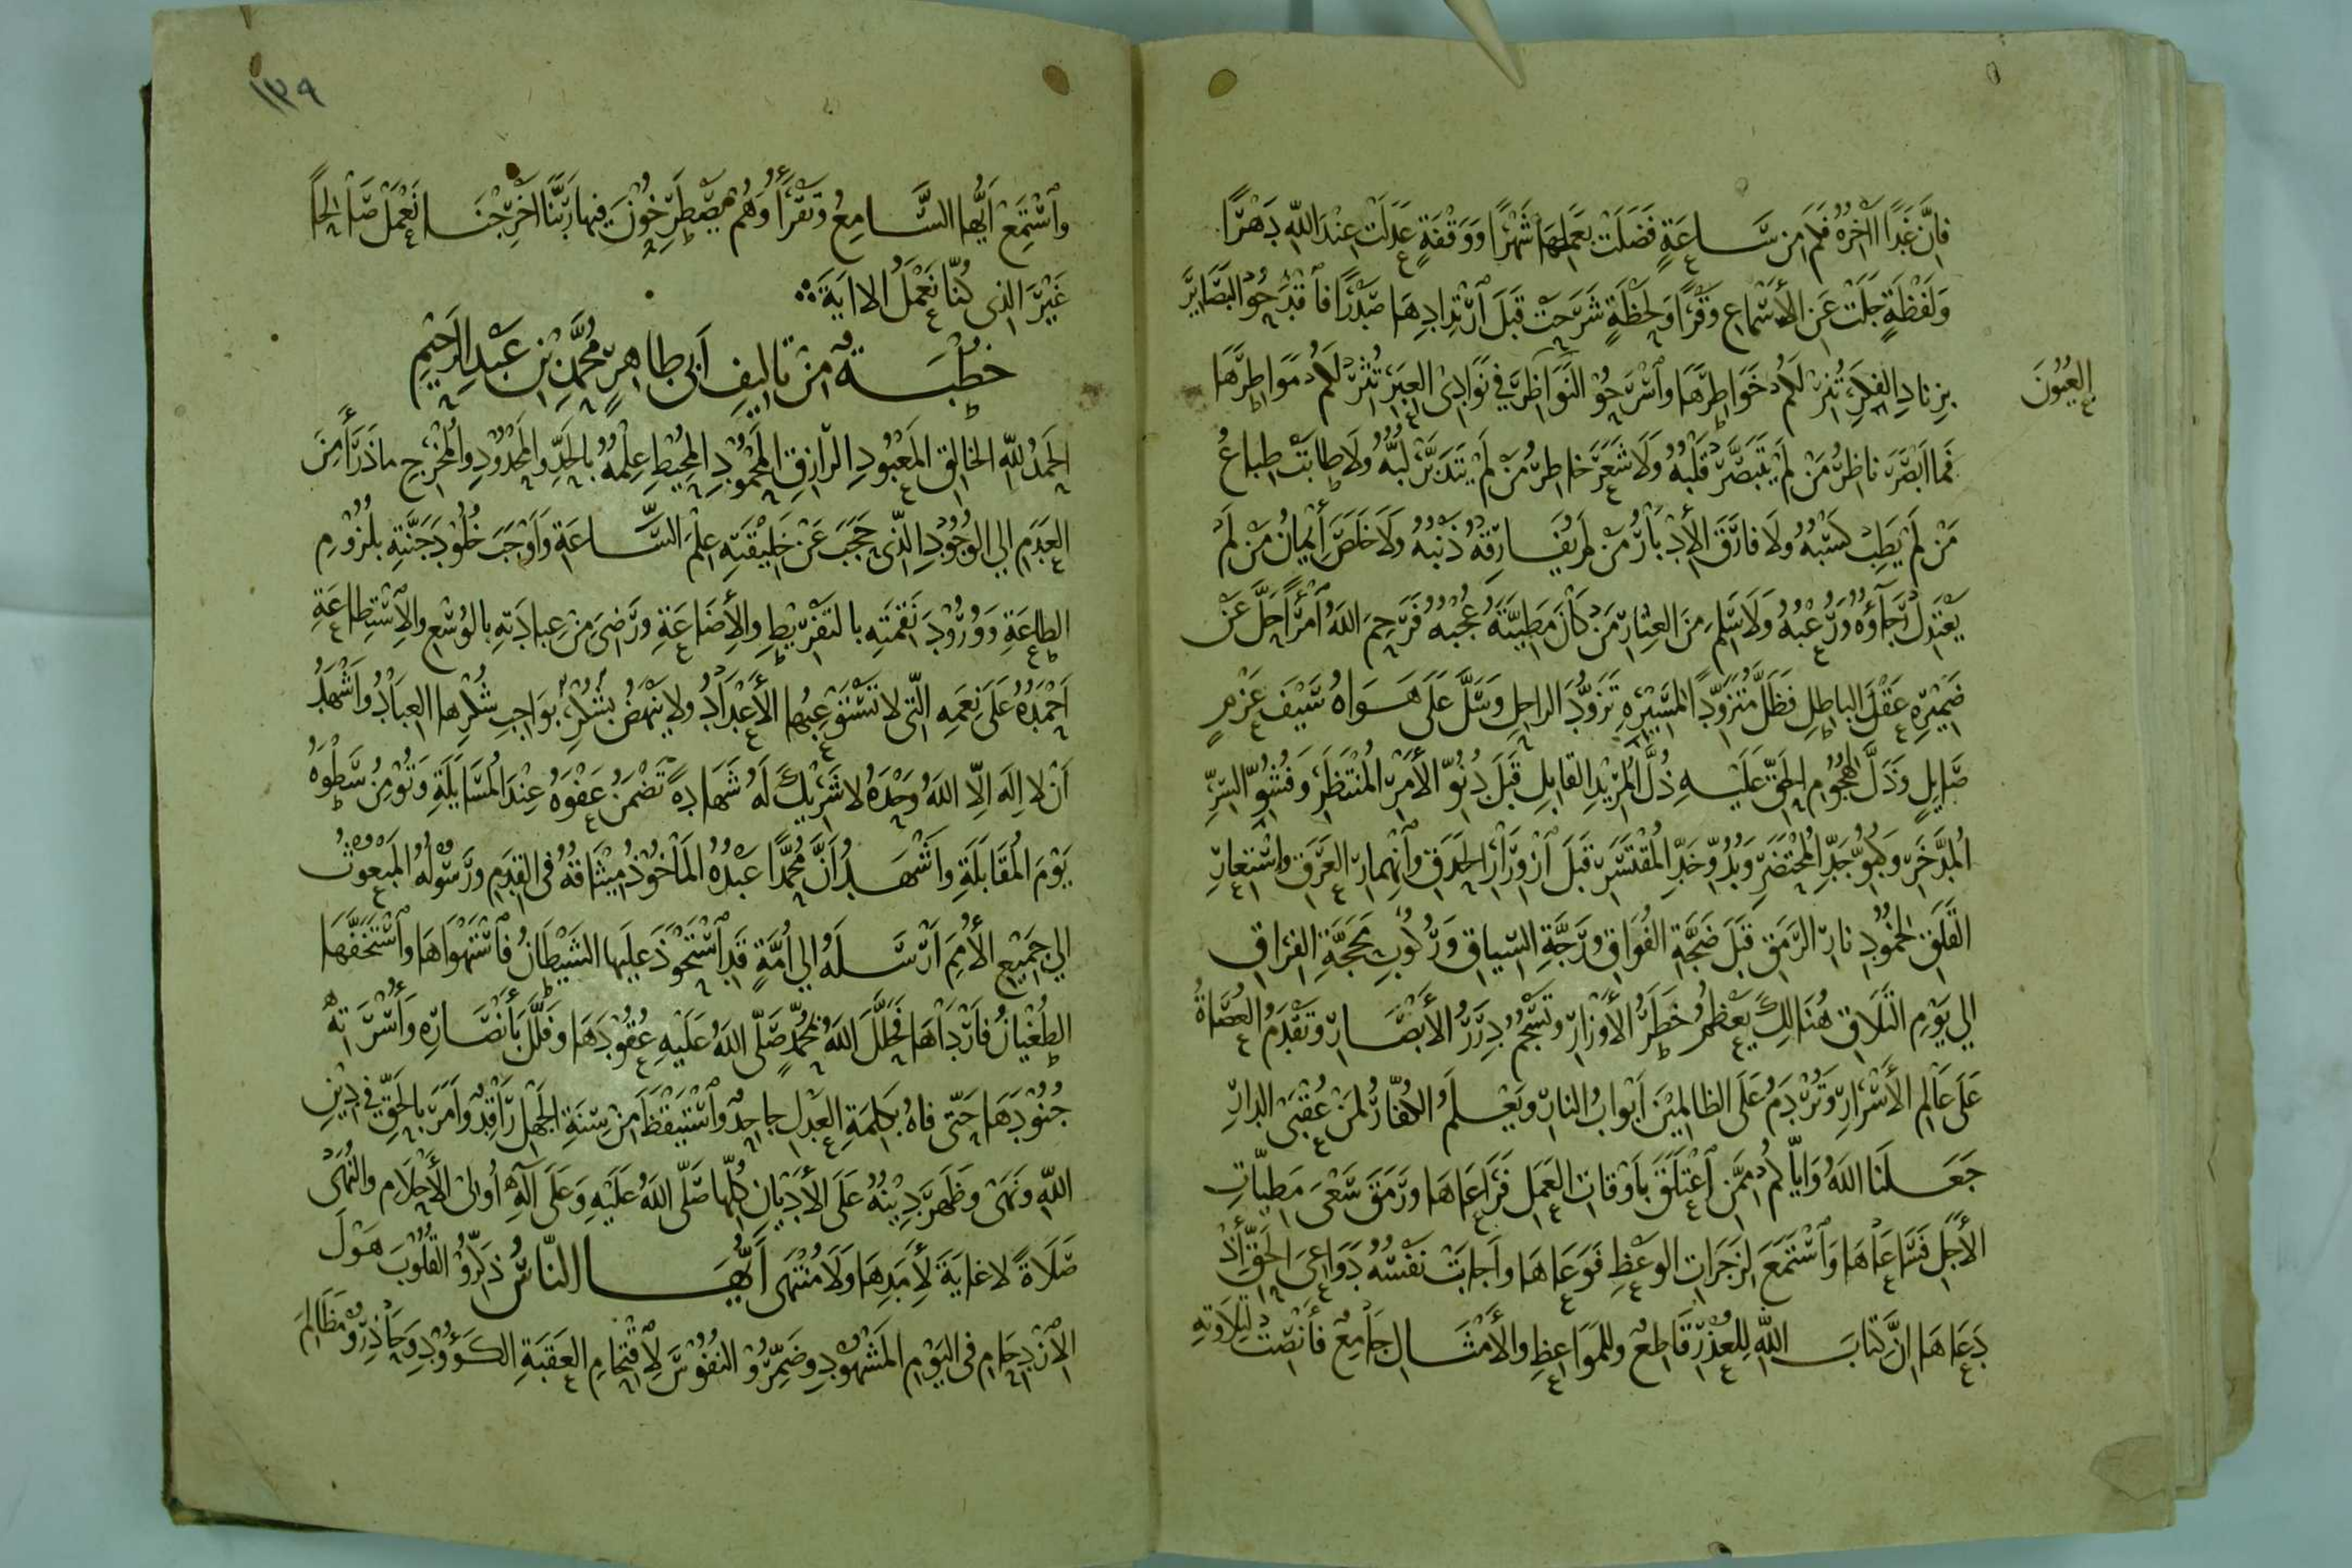 فَإِنَّ غَدًا آخِرُهُ فَلَمْ مِن سَّاعَةٍ فَضَلَتْ بِعَمَلِهَا شَهْرًا وَوَقْفَةٍ عَدَلَتْ عِنْدَ اللهِ دَهْرًا
وَلَفْظَةٍ جَلَتْ عَنِ الْأَسْمَاعِ وَقْرًا وَلَحْظَةٍ شَرَحَتْ قَبْلَ ارْتِدَادِهَا صَدْرًا فَاقْدَحُوا الْبَصَايِرَ
بِزِنَادِ الْفِكَرِ تُنِرْ لَكُمْ خَوَاطِرَهَا وَاسْرَحُوا النَّوَاظِرَ فِي نَوَادِي الْعِبَرِ تُثِرْ لَكُمْ مَوَاطِرَهَا
الْعُيُونَ
فَمَا أَبْصَرَ نَاظِرُ مَنْ لَمْ يَتَبَصَّرْ قَلْبُهُ وَلَا شَعَرَ خَاطِرُ مَنْ لَمْ يَتَدَبَّرْ لُبُّهُ وَلَا طَابَتْ طِبَاعُ
مَنْ لَمْ يَطِبْ كَسْبُهُ وَلَا فَارَقَ الْإِدْبَارُ مَنْ لَمْ يُفَارِقْهُ ذَنْبُهُ وَلَا خَلَصَ إِيمَانُ مَنْ لَمْ
يَعْتَدِلْ رَجَاؤُهُ وَرُعْبُهُ وَلَا سَلِمَ مِنَ الْعِثَارِ مَنْ كَانَ مَطِيَّتَهُ عُجْبُهُ فَرَحِمَ اللهُ امْرَأً حَلَّ عَنْ
ضَمِيرِهِ عَقْلَ الْبَاطِلِ فَظَلَّ مُتَزَوِّدًا لِمَسِيرِهِ تَزَوُّدَ الرَّاحِلِ وَسَلَّ عَلَى هَوَاهُ سَيْفَ عَزْمٍ
صَايِلٍ وَذَلَّ لِهُجُومِ الْحَقِّ عَلَيْهِ ذُلَّ الْمُرِيدِ الْقَابِلِ قَبْلَ دُنُوِّ الْأَمْرِ الْمُنْتَظَرِ وَفُشُوِّ السِّرِّ
الْمُدَّخَرِ وَكُبُوِّ جَدِّ الْمُحْتَضَرِ وَبُدُوِّ خَدِّ الْمُقْتَسَرِ قَبْلَ ازْوِرَارِ الْحَدَقِ وَانْهِمَارِ الْعَرَقِ وَاسْتِعَارِ
الْقَلَقِ لِخُمُودِ نَارِ الرَّمَقِ قَبْلَ ضَجَّةِ الْفُوَاقِ وَرَجَّةِ السِّيَاقِ وَرُكُوبِ مَحَجَّةِ الْفِرَاقِ
إِلَى يَوْمِ التَّلَاقِ هُنَالِكَ يَعْظُمُ خَطَرُ الْأَوْزَارِ وَتَسْجُمُ دِرَرُ الْأَبْصَارِ وَتَقْدَمُ الْعُصَاةُ
عَلَى عَالِمِ الْأَسْرَارِ وَتُرْدَمُ عَلَى الظَّالِمِينَ أَبْوَابُ النَّارِ وَيَعْلَمُ الْكُفَّارُ لِمَنْ عُقْبَى الدَّارِ
جَعَلَنَا اللهُ وَإِيَّاكُمْ مِمَّنِ اعْتَلَقَ بِأَوْقَاتِ الْعَمَلِ فَرَاعَاهَا وَرَمَقَ سَعْيَ مَطِيَّاتِ
الْأَجَلِ فَسَاعَاهَا وَاسْتَمَعَ لِزَجَرَاتِ الْوَعْظِ فَوَعَاهَا وَأَجَابَتْ نَفْسُهُ دَوَاعِيَ الْحَقِّ إِذْ
دَعَاهَا إِنَّ كِتَابَ اللهِ لِلْعُذْرِ قَاطِعٌ وَلِلْمَوَاعِظِ وَالْأَمْثَالِ جَامِعٌ فَأَنْصِتْ لِتِلَاوَتِهِ
١٣٩
وَاسْتَمِعْ أَيُّهَا السَّامِعُ وَتَقْرَأُ وَهُمْ يَصْطَرِخُونَ فِيهَا رَبَّنَا أَخْرِجْنَا نَعْمَلْ صَالِحًا
غَيْرَ الَّذِي كُنَّا نَعْمَلُ الْآيَةَ
خُطْبَةٌ مِنْ تَالِيفِ أَبِي طَاهِرٍ مُحَمَّدِ بْنِ عَبْدِ الرَّحِيمِ
الْحَمْدُ لِلّٰهِ الْخَالِقِ الْمَعْبُودِ الرَّازِقِ الْمَحْمُودِ الْمُحِيطِ عِلْمُهُ بِالْحَدِّ وَالْمَحْدُودِ وَالْمُخْرِجِ مَا ذَرَأَ مِنَ
الْعَدَمِ إِلَى الْوُجُودِ الَّذِي حَجَبَ عَنْ خَلِيقَتِهِ عِلْمَ السَّاعَةِ وَأَوْجَبَ خُلُودَ جَنَّتِهِ بِلُزُومِ
الطَّاعَةِ وَوُرُودَ نَقْمَتِهِ بِالتَّفْرِيطِ وَالْإِضَاعَةِ وَرَضِيَ مِنْ عِبَادَتِهِ بِالْوُسْعِ وَالِاسْتِطَاعَةِ
أَحْمَدُهُ عَلَى نِعَمِهِ الَّتِي لَا تَسْتَوْعِبُهَا الْأَعْدَادُ وَلَا يَنْهَضُ بِوَاجِبِ شُكْرِهَا الْعِبَادُ وَأَشْهَدُ
أَنْ لَا إِلَهَ إِلَّا اللهُ وَحْدَهُ لَا شَرِيكَ لَهُ شَهَادَةً تَضْمَنُ عَفْوَهُ عِنْدَ الْمُسَايَلَةِ وَتُؤْمِنُ سَطْوَهُ
يَوْمَ الْمُقَابَلَةِ وَأَشْهَدُ أَنَّ مُحَمَّدًا عَبْدُهُ الْمَأْخُوذُ مِيثَاقُهُ فِي الْقِدَمِ وَرَسُولُهُ الْمَبْعُوثُ
إِلَى جَمِيعِ الْأُمَمِ أَرْسَلَهُ إِلَى أُمَّةٍ قَدِ اسْتَحْوَذَ عَلَيْهَا الشَّيْطَانُ فَاسْتَهْوَاهَا وَاسْتَخَفَّهَا
الطُّغْيَانُ فَأَرْدَاهَا فَحَلَّلَ اللهُ بِمُحَمَّدٍ صَلَّى اللهُ عَلَيْهِ عُقُودَهَا وَفَلَّلَ بِأَنْصَارِهِ وَأُسْرَتِهِ
جُنُودَهَا حَتَّى فَاهُ بِكَلِمَةِ الْعَدْلِ جَاحِدٌ وَاسْتَيْقَظَ مِنْ سِنَةِ الْجَهْلِ رَاقِدٌ وَأَمَرَ بِالْحَقِّ فِي دِينِ
اللهِ وَنَهَى وَظَهَرَ دِينُهُ عَلَى الْأَدْيَانِ كُلِّهَا صَلَّى اللهُ عَلَيْهِ وَعَلَى آلِهِ أُولِي الْأَحْلَامِ وَالنُّهَى
صَلَاةً لَا غَايَةَ لِأَمَدِهَا وَلَا مُنْتَهَى أَيُّهَا النَّاسُ ذَكِّرُوا الْقُلُوبَ هَوْلَ
الِازْدِحَامِ فِي الْيَوْمِ الْمَشْهُودِ وَضَمِّرُوا النُّفُوسَ لِاقْتِحَامِ الْعَقَبَةِ الْكَؤُودِ وَحَاذِرُوا مَظَالِمَ